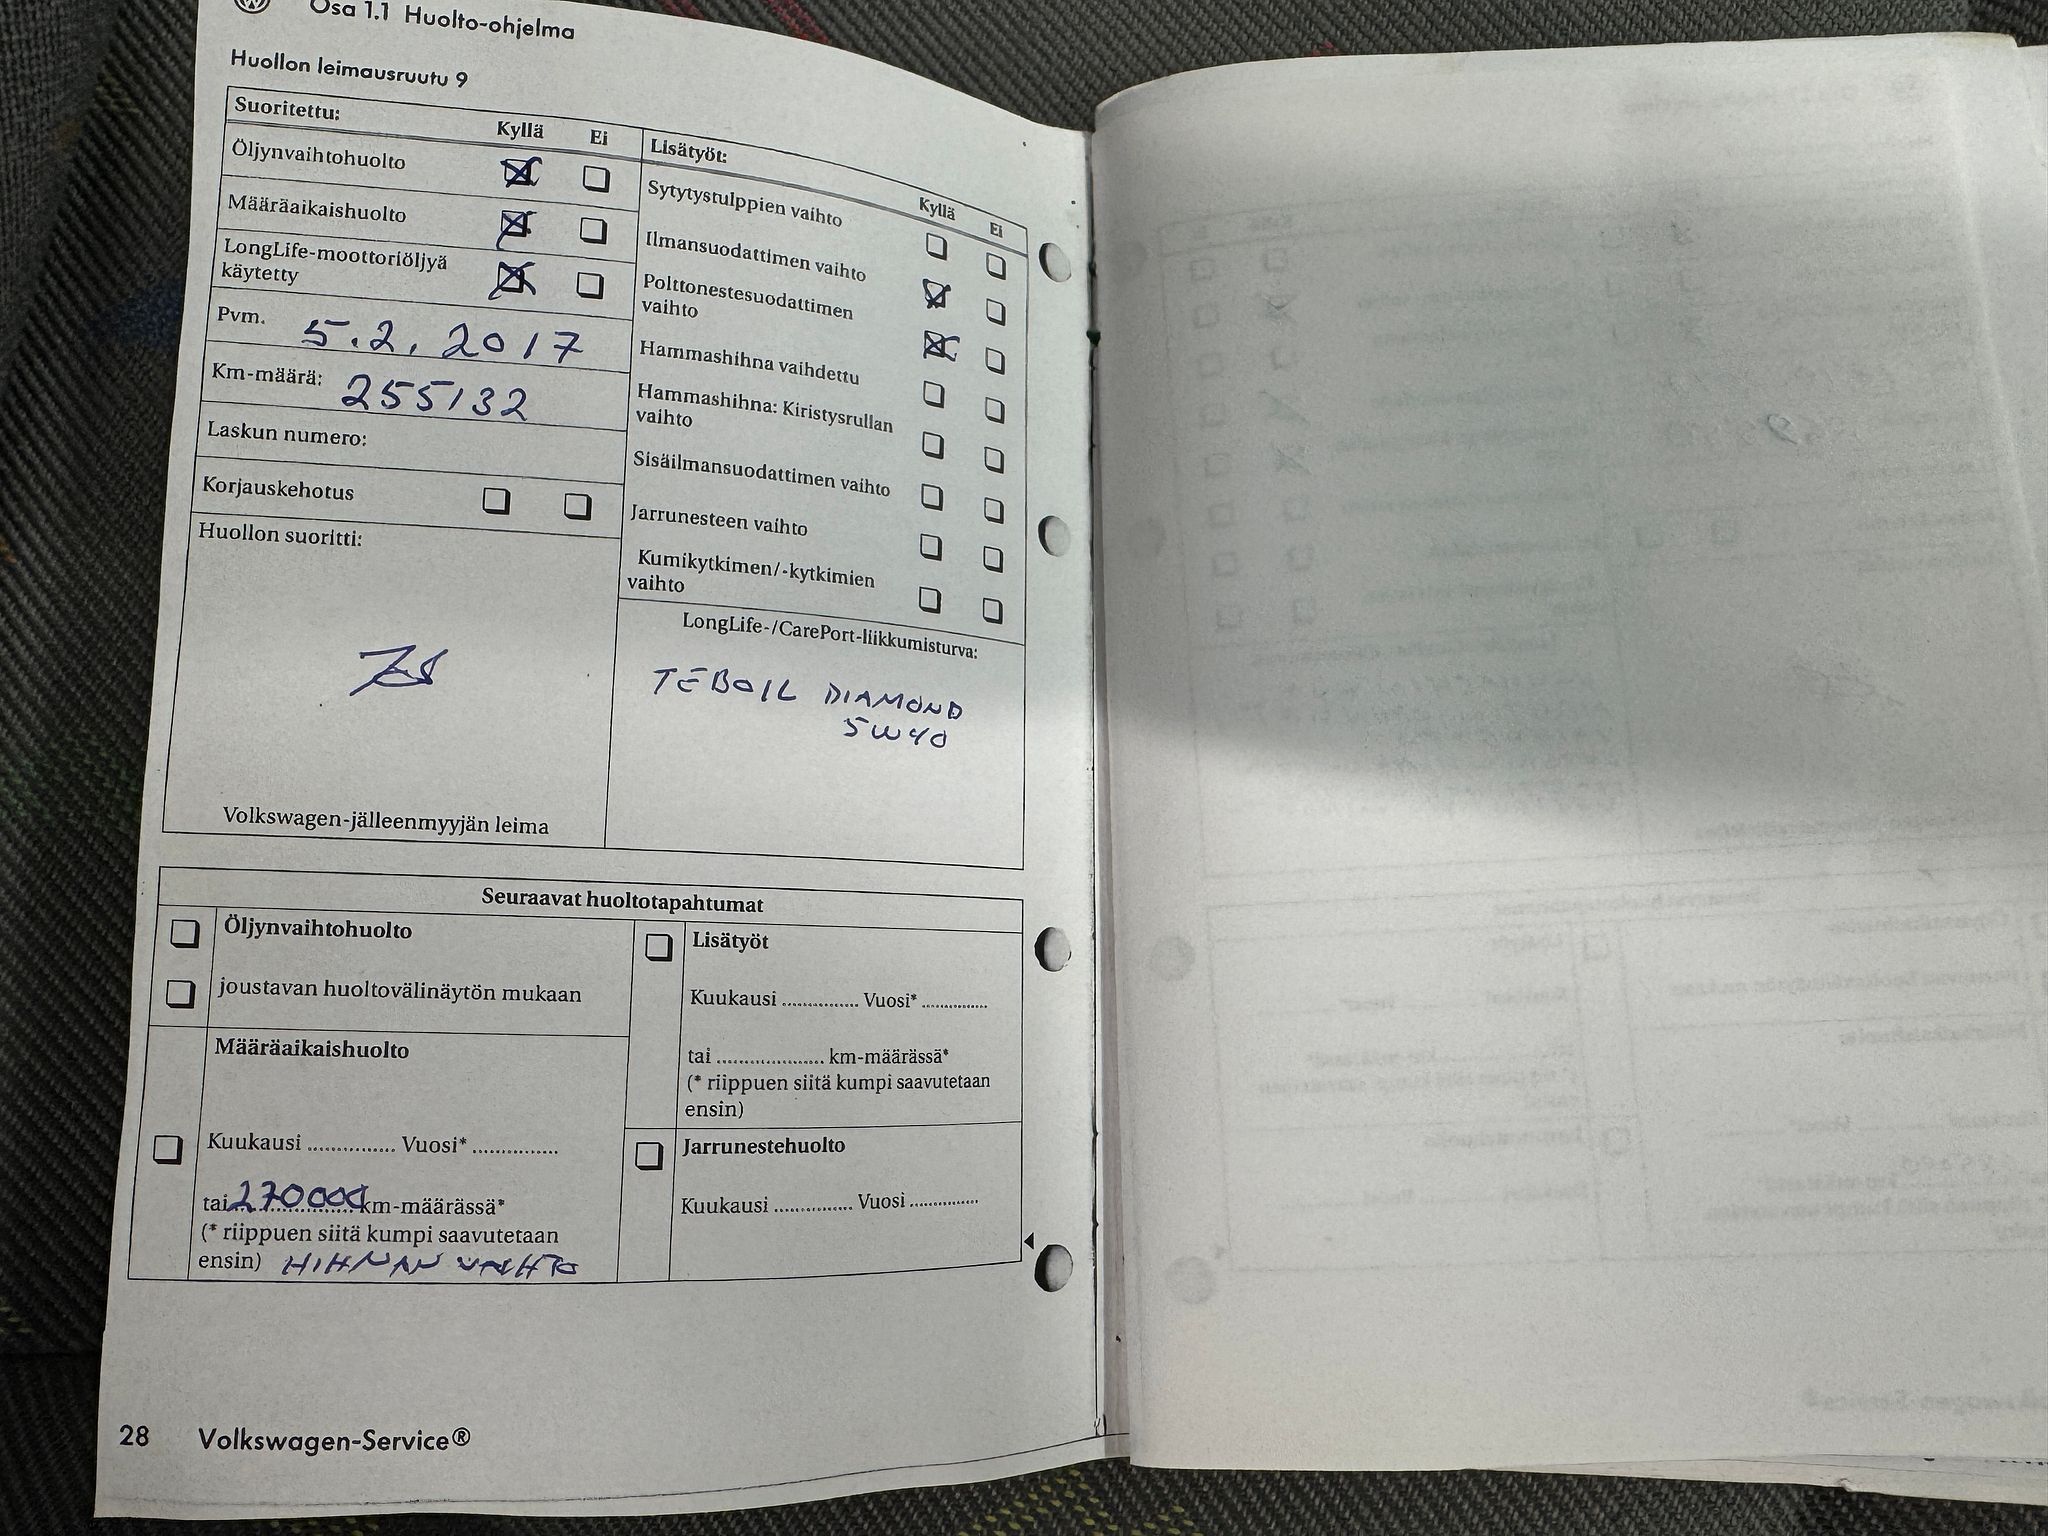 Osa 1.1 Huolto-ohjelma
Huollon leimausruutu 9
Suoritettu:
Kyllä Ei
Öljynvaihtohuolto
Määräaikaishuolto
LongLife-moottoriöljyä
käytetty
Pvm. 5.2.2017
Km-määrä: 255132
Laskun numero:
Korjauskehotus
Huollon suoritti:
Volkswagen-jälleenmyyjän leima
Lisätyöt:
Kyllä Ei
Sytytystulppien vaihto
Ilmansuodattimen vaihto
Polttonestesuodattimen
vaihto
Hammashihna vaihdettu
Hammashihna: Kiristysrullan
vaihto
Sisäilmansuodattimen vaihto
Jarrunesteen vaihto
Kumikytkimen/-kytkimien
vaihto
LongLife-/CarePort-liikkumisturva:
TEBOIL DIAMOND
5W40
Seuraavat huoltotapahtumat
Öljynvaihtohuolto
joustavan huoltovälinäytön mukaan
Määräaikaishuolto
Kuukausi ............... Vuosi* ...............
tai 270000 km-määrässä*
(* riippuen siitä kumpi saavutetaan
ensin) HIHNAN VAIHTO
Lisätyöt
Kuukausi ............... Vuosi* ...............
tai ..................... km-määrässä*
(* riippuen siitä kumpi saavutetaan
ensin)
Jarrunestehuolto
Kuukausi ............... Vuosi ...............
28 Volkswagen-Service®